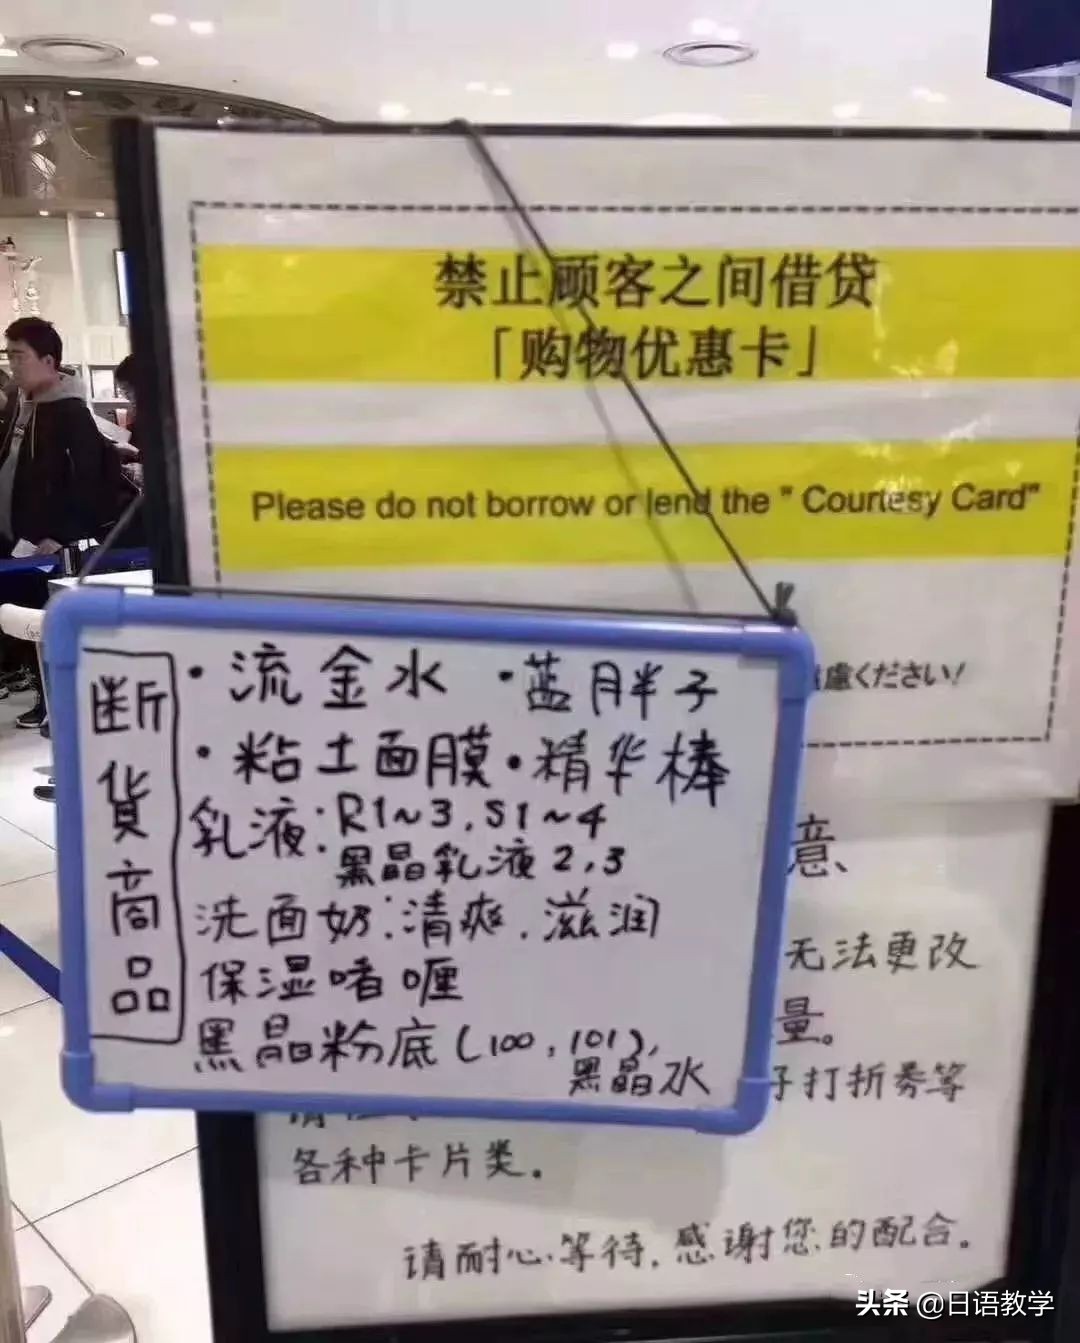 禁止顾客之间借贷
「购物优惠卡」
Please do not borrow or lend the " Courtesy Card"
慮ください!
断货商品
·流金水 ·蓝胖子
·粘土面膜·精华棒
乳液:R1~3,S1~4
黑晶乳液2,3
洗面奶:清爽.滋润
保湿啫喱
黑晶粉底(100,101),
黑晶水
意、
无法更改
量。
子打折券等
各种卡片类。
请耐心等待,感谢您的配合。
头条 @日语教学